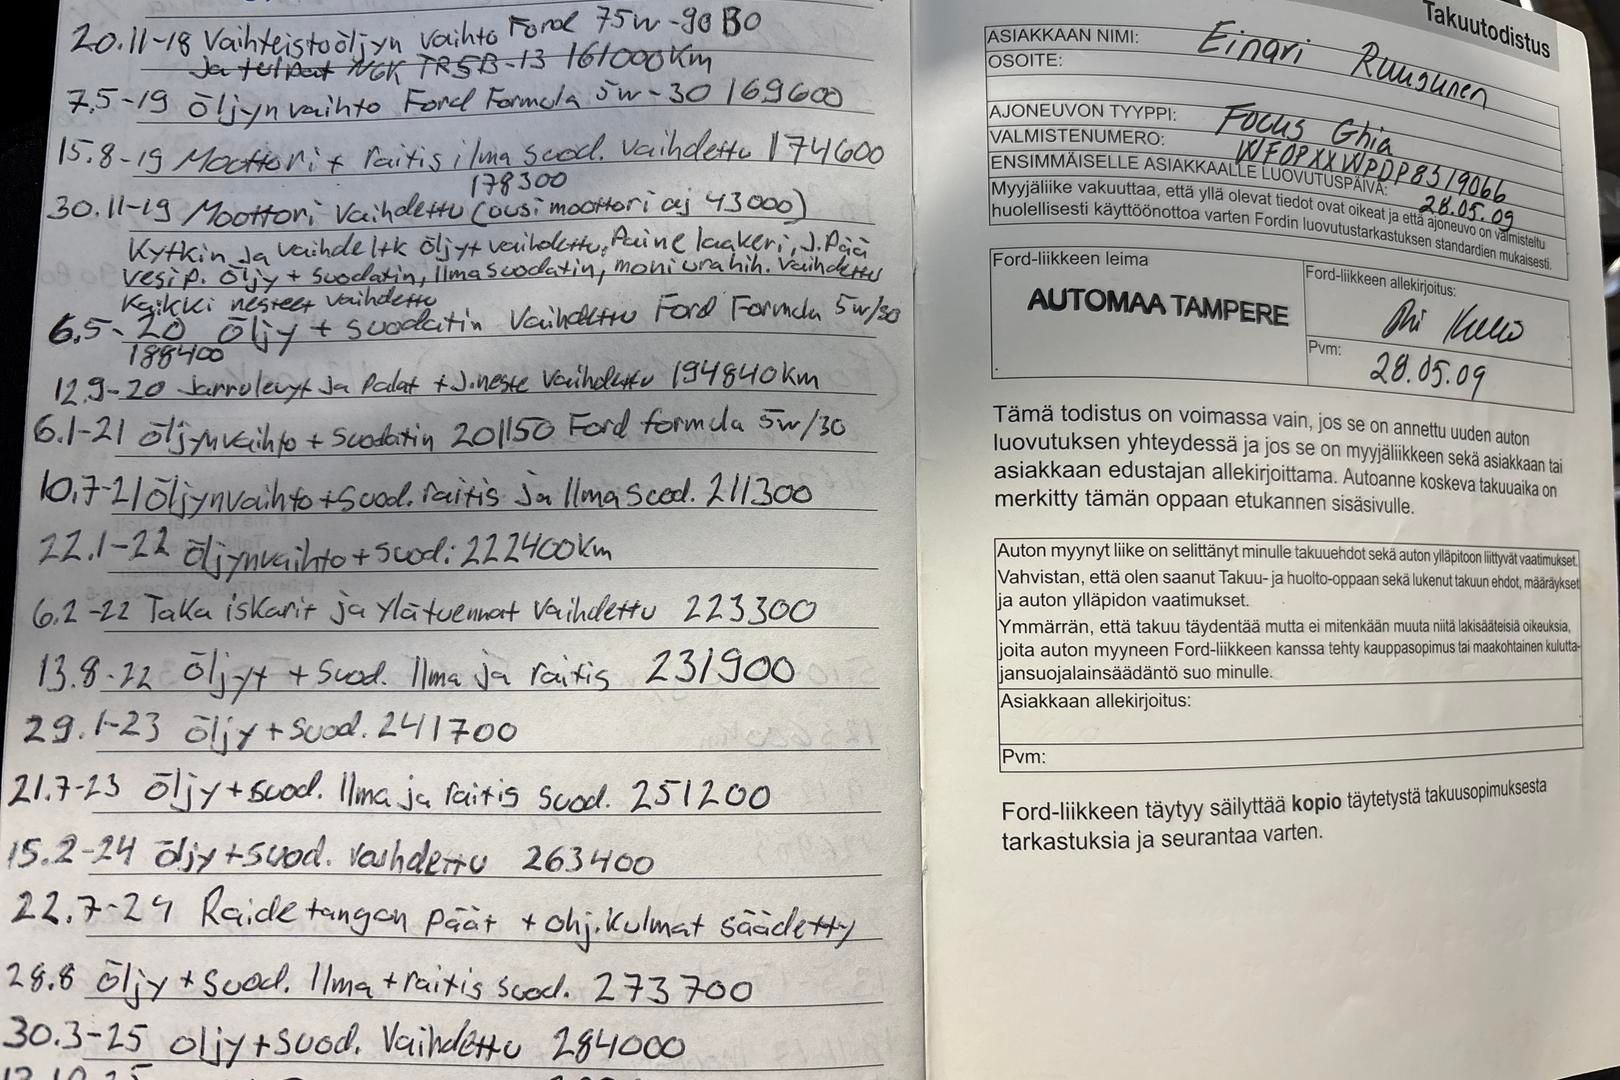 20.11-18 Vaihteistoöljyn vaihto Ford 75w-90 BO
ja tulpat NGK TR5B-13 161000Km
7.5-19 öljyn vaihto Ford Formula 5w-30 169600
15.8-19 Moottori + raitis ilma suod. vaihdettu 174600
178300
30.11-19 Moottori vaihdettu (uusi moottori aj 43000)
Kytkin ja vaihdeltk öljyt vaihdettu, Paine laakeri, J.Pää
vesip. öljy + suodatin, Ilmasuodatin, moniurahih. vaihdettu
Kaikki nesteet vaihdettu
6.5-20 öljy + suodatin vaihdettu Ford Formula 5w/30
188400
12.9-20 Jarrulevyt ja Palat + J.neste vaihdettu 194840km
6.1-21 öljynvaihto + suodatin 201150 Ford formula 5w/30
10.7-21 öljynvaihto + suod. raitis ja Ilma suod. 211300
22.1-22 öljynvaihto + suod: 222400Km
6.2-22 Taka iskarit ja ylätuennat vaihdettu 223300
13.8-22 öljyt + suod. Ilma ja raitis 231900
29.1-23 öljy + suod. 241700
21.7-23 öljy + suod. Ilma ja raitis suod. 251200
15.2-24 öljy + suod. vaihdettu 263400
22.7-24 Raidetangon päät + ohj.kulmat säädetty
28.8 öljy + suod. Ilma + raitis suod. 273700
30.3-25 oljy + suod. vaihdettu 284000
Takuutodistus
ASIAKKAAN NIMI: Einari Ruuskanen
OSOITE:
AJONEUVON TYYPPI: Focus Ghia
VALMISTENUMERO: WF0PXXWPDP8S19066
ENSIMMÄISELLE ASIAKKAALLE LUOVUTUSPÄIVÄ: 28.05.09
Myyjäliike vakuuttaa, että yllä olevat tiedot ovat oikeat ja että ajoneuvo on valmisteltu
huolellisesti käyttöönottoa varten Fordin luovutustarkastuksen standardien mukaisesti.
Ford-liikkeen leima
AUTOMAA TAMPERE
Ford-liikkeen allekirjoitus:
Pvm:
28.05.09
Tämä todistus on voimassa vain, jos se on annettu uuden auton
luovutuksen yhteydessä ja jos se on myyjäliikkeen sekä asiakkaan tai
asiakkaan edustajan allekirjoittama. Autoanne koskeva takuuaika on
merkitty tämän oppaan etukannen sisäsivulle.
Auton myynyt liike on selittänyt minulle takuuehdot sekä auton ylläpitoon liittyvät vaatimukset.
Vahvistan, että olen saanut Takuu- ja huolto-oppaan sekä lukenut takuun ehdot, määräykset
ja auton ylläpidon vaatimukset.
Ymmärrän, että takuu täydentää mutta ei mitenkään muuta niitä lakisääteisiä oikeuksia,
joita auton myyneen Ford-liikkeen kanssa tehty kauppasopimus tai maakohtainen kulutta-
jansuojalainsäädäntö suo minulle.
Asiakkaan allekirjoitus:
Pvm:
Ford-liikkeen täytyy säilyttää kopio täytetystä takuusopimuksesta
tarkastuksia ja seurantaa varten.